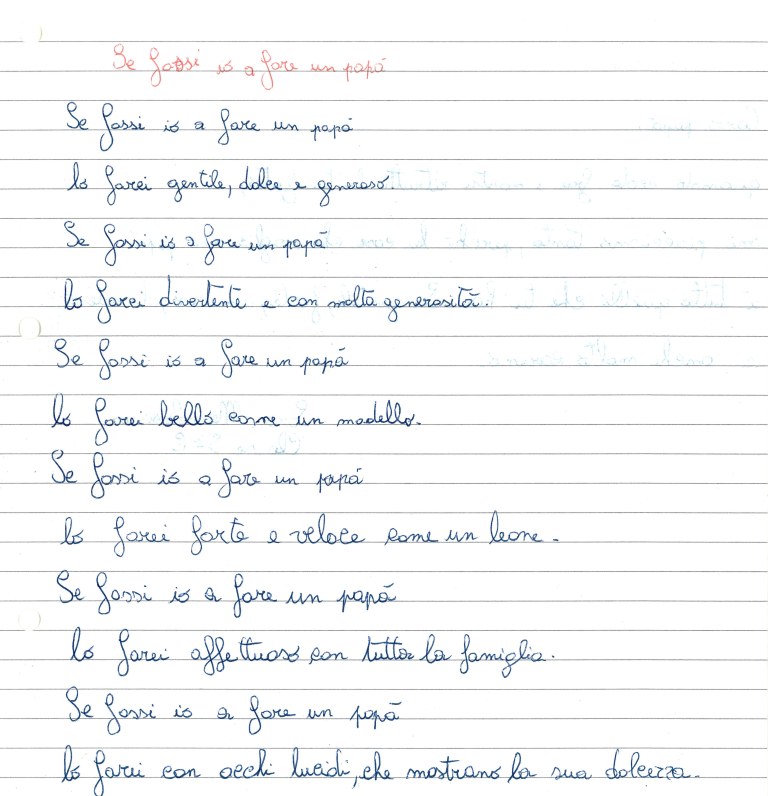 Se fossi io a fare un papá
Se fossi io a fare un papá
lo farei gentile, dolce e generoso.
Se fossi io a fare un papá
lo farei divertente e con molta generosità.
Se fossi io a fare un papá
lo farei bello come un modello.
Se fossi io a fare un papá
lo farei forte e veloce come un leone.
Se fossi io a fare un papá
lo farei affettuoso con tutta la famiglia.
Se fossi io a fare un papá
lo farei con occhi lucidi, che mostrano la sua dolcezza.